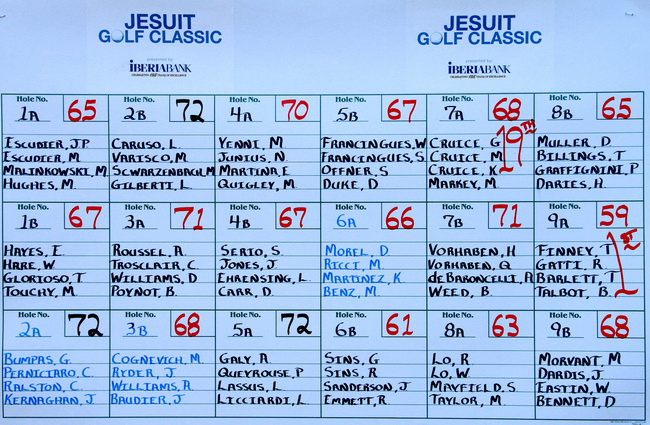 JESUIT
GOLF CLASSIC
presented by
IBERIABANK
JESUIT
GOLF CLASSIC
presented by
IBERIABANK
Hole No.
1A 65
ESCUDIER, J.P.
ESCUDIER, M.
MALINKOWSKI, M
HUGHES, M.
Hole No.
2B 72
CARUSO, L.
VARISCO, M.
SCWARZENBACH, M
GILBERTI, L.
Hole No.
4A 70
YENNI, M
JUNIUS, N.
MARTINA, E
QUIGLEY, M.
Hole No.
5B 67
FRANCINGUES, W
FRANCINGUES, S
OFFNER, S
DUKE, D
Hole No.
7A 68
CRUICE, G
CRUICE, M
CRUICE, K
MARKEY, M.
19TH
Hole No.
8B 65
MULLER, D.
BILLINGS, T
GRAFFIGNINI, P
DARIES, H.
Hole No.
1B 67
HAYES, E.
HARE, W.
GLORIOSO, T.
TOUCHY, M.
Hole No.
3A 71
ROUSSEL, A.
TROSCLAIR, C.
WILLIAMS, D
POYNOT, B.
Hole No.
4B 67
SERIO, S.
JONES, J.
EHRENSING, L.
CARR, D.
Hole No.
6A 66
MOREL, D.
RICCI, M.
MARTINEZ, K.
BENZ, M.
Hole No.
7B 71
VORHABEN, H
VORHABEN, Q.
deBARONCELLI, A
WEED, B.
Hole No.
9A 59
FINNEY, T
GATTI, R.
BARLETT, T
TALBOT, B.
1ST
Hole No.
2A 72
BUMPAS, G.
PERNICIARO, C.
RALSTON, C.
KERNAGHAN, J
Hole No.
3B 68
COGNEVICH, M.
RYDER, J.
WILLIAMS, A.
BAUDIER, J.
Hole No.
5A 72
GALY, A.
QUEYROUSE, P
LASSUS, L.
LICCIARDI, L.
Hole No.
6B 61
SINS, G
SINS, R
SANDERSON, J
EMMETT, R.
Hole No.
8A 63
LO, R
LO, W.
MAYFIELD, S
TAYLOR, M.
Hole No.
9B 68
MORVANT, M
DARDIS, J.
EASTIN, W.
BENNETT, D